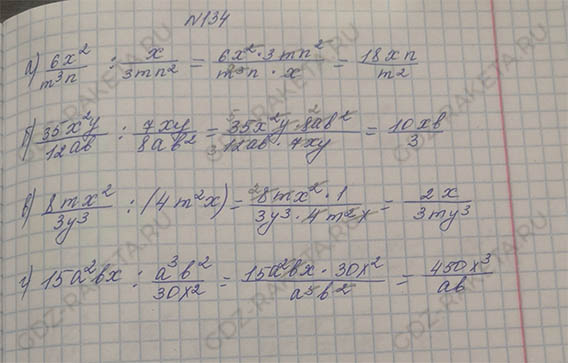 №134
а) 6x²/m³n : x/3mn² = 6x²·3mn²/m³n·x = 18xn/m²
б) 35x²y/12ab : 7xy/8ab² = 35x²y·8ab²/12ab·7xy = 10xb/3
в) 8mx²/3y³ : (4m²x) = 8mx²·1/3y³·4m²x = 2x/3my³
г) 15a²bx : a³b²/30x² = 15a²bx·30x²/a³b² = 450x³/ab
GDZ-RAKETA.RU